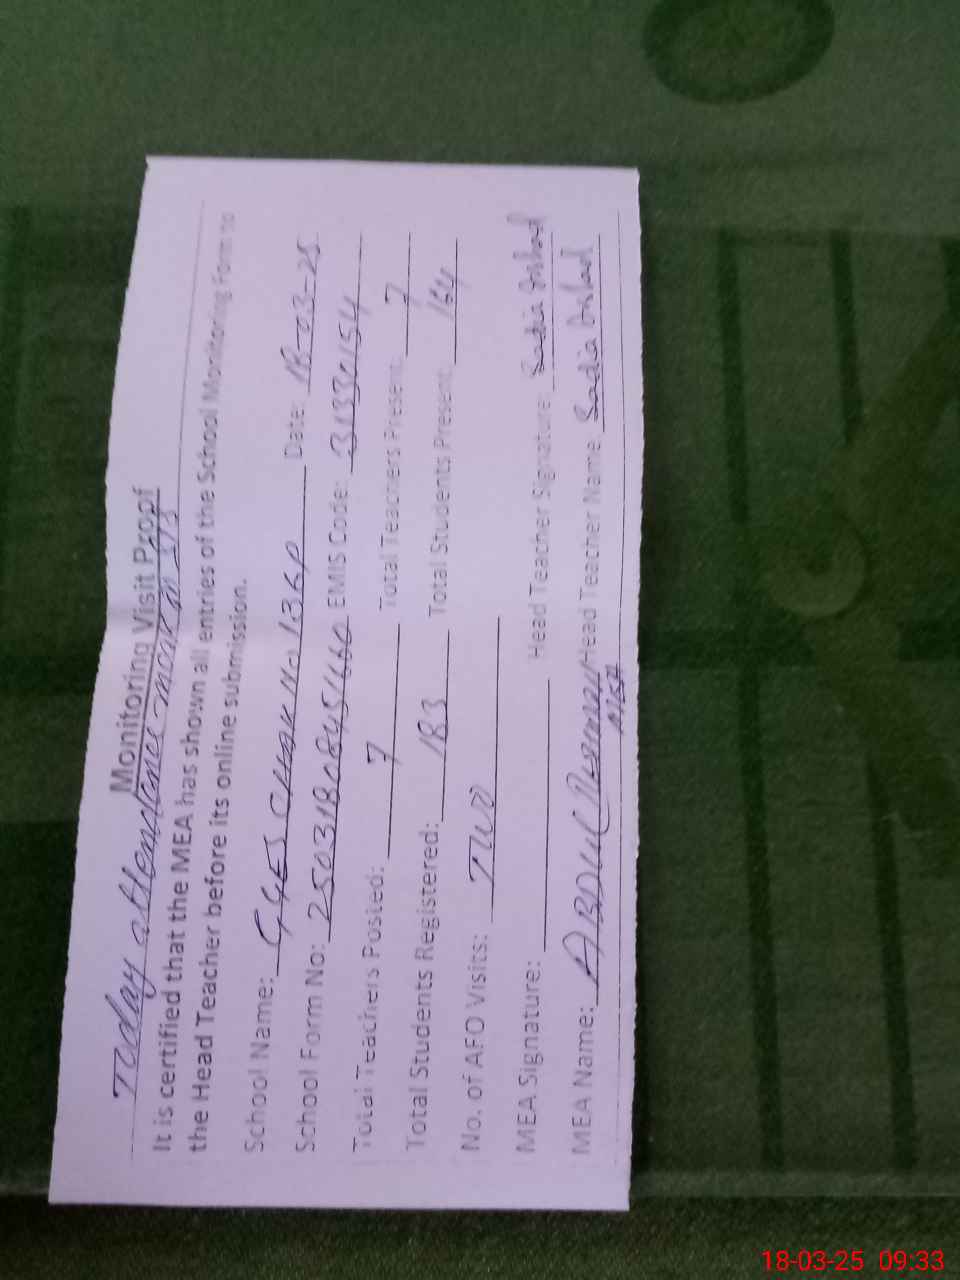 Monitoring Visit Proof
Today attendance mark in
It is certified that the MEA has shown all entries of the School Monitoring Form to
the Head Teacher before its online submission.
School Name: GGES CHAK No 136P Date: 18-03-25
School Form No: EMIS Code: 31330154
Total Teachers Posted: 7 Total Teachers Present: 7
Total Students Registered: 183 Total Students Present: 164
No. of AFO Visits: TWO
MEA Signature: Head Teacher Signature: Sadia Arshad
MEA Name: ABDUL Rehman Head Teacher Name Sadia Arshad
18-03-25 09:33